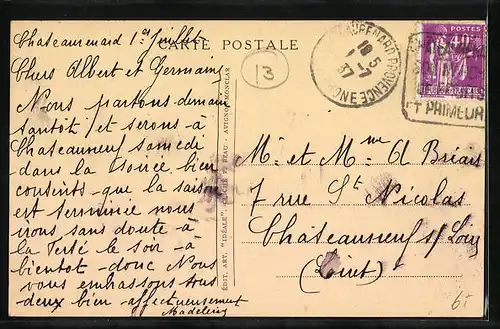 Chateaurenard 1er Juillet
CARTE POSTALE
13
Chers Albert et Germaine
Nous partons demain
tantôt et serons à
Chateauneuf samedi
dans la soirée bien
contents que la saison
est terminée nous
irons sans doute à
la Ferté le soir à
bientôt donc Nous
vous embrassons tous
deux bien affectueusement
Madeleine
EDIT. ART. "IDÉALE" AVIGNON-MONCLAR
RENARD-PROVENCE
18 5
1-7
37
RHONE
POSTES
40
ET PRIMEUR
M. et Mme A Briais
7 rue St Nicolas
Châteauneuf s/ Loire
(Loiret)